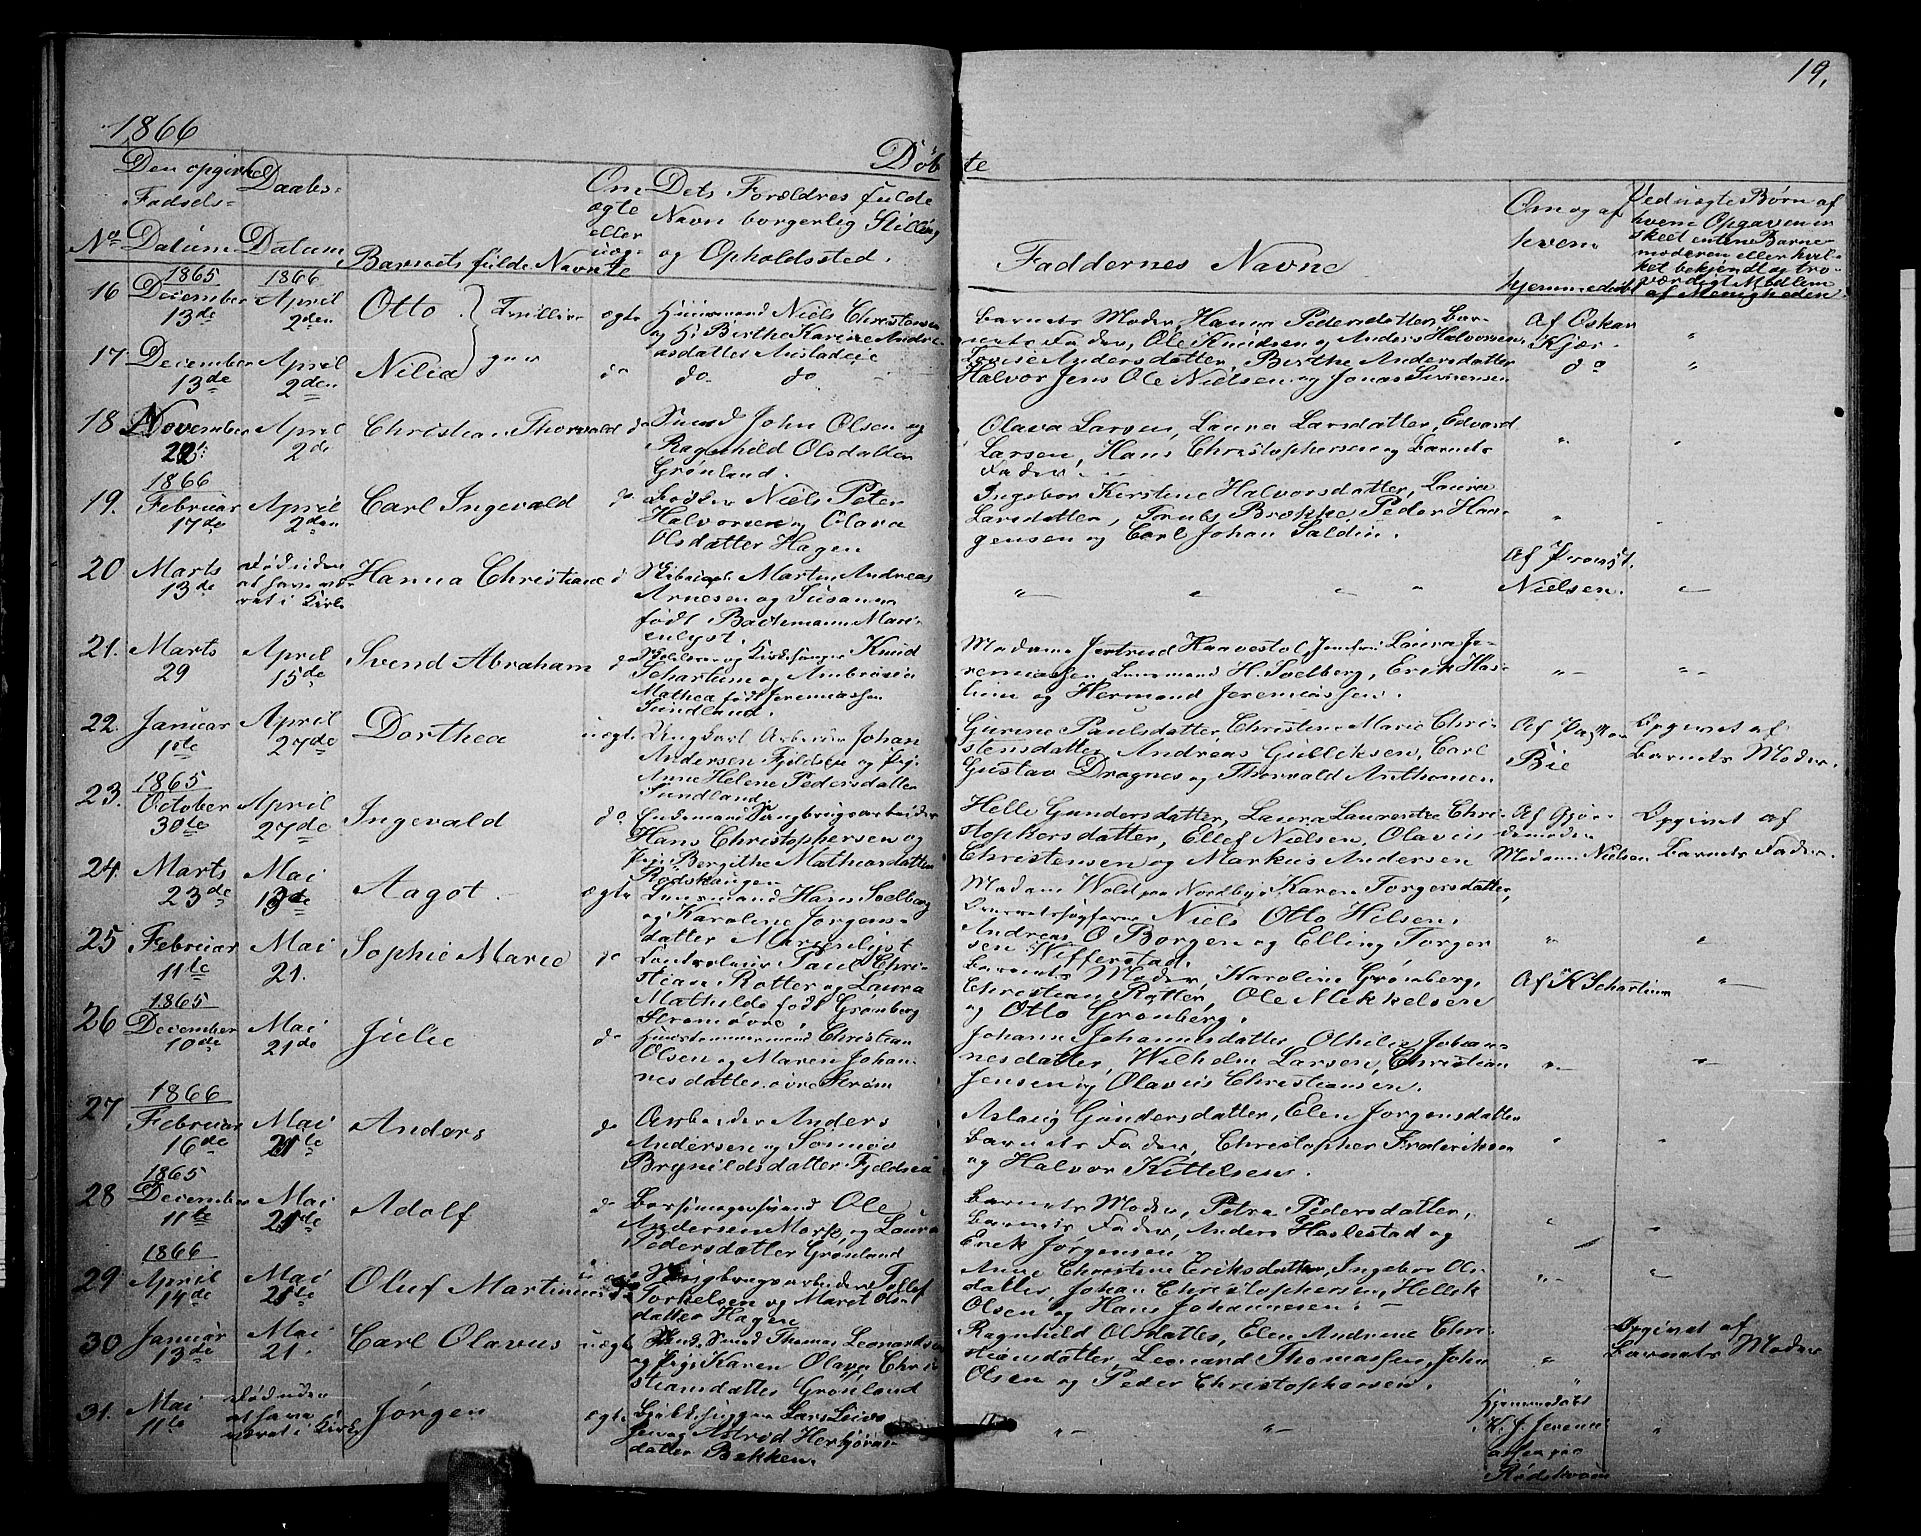 19.
1866
Döbte
No
Den opgivne Fødsels-Datum
Daabs-Datum
Barnets fulde Navn
Om ægte eller uægte
Dets Forældres fulde Navn borgerlig Stilling og Opholdssted.
Faddernes Navne
Om og af hvem hjemmedøbt
Ved uægte Børn af hvem Opgaven er skeet enten Barnemoderen eller hvilket bekjendt og troværdigt Medlem af Menigheden
16 1865 December 13de
1866 April 2den
Otto
Tvillinger
ægte
Huusmand Niels Christensen og H. Birthe Karine Andreasdatter
Barnets Moder, Hanna Pedersdatter, Barnets Fader, Ole Knudsen og Anders Halvorsen
Af Oskar Kjær.
"
17 December 13de
April 2den
Nilia
do
do do
Lovise Andersdatter, Birthe Andersdatter
Halvor Jens Ole Nielsen og Jonas Sørensen
do
"
18 November 22
April 2de
Christian Thorvald
do
John Olsen og Ragnhild Olsdatter Grönland.
Olava Larsen, Laura Larsdatter, Edvard Larsen, Hans Christophersen og Barnets Fader.
"
"
19. 1866 Februar 17de
April 2den
Carl Ingevald
do
Niels Peter Halvorsen og Olava Olsdatter Hagen
Ingebor Kirstine Halvorsdatter, Laura Larsdatter, Brække Peder Haagensen og Carl Johan Saldin.
"
"
20 Marts 13de
Död uden at have været i Kirke
Hanna Christiane
d
Morten Andreas Arnesen og Susanna födt
" " " "
Af Provst Nielsen.
"
21. Marts 29
April 15de
Svend Abraham
do
Skolelærer og Kirkesanger Knud Schartum og Ambrosia Mathea født Jeremiassen Sundland.
Madame Jertrud Haavestol, Jomfru Laura Jeremiassen, Lensmand H. Solberg, Erik Haslum og Hermand Jeremiassen.
"
"
22. Januar 1ste
April 27de
Dorthea
uægte
Ungkarl Arbeider Johan Andersen og Pige Anne Helene Pedersdatter Sundland
Gurine Paulsdatter, Christine Marie Christensdatter, Andreas Gulliksen, Carl Gustav Dragnes og Thorvald Anthonsen
Af Pastor Bie
Opgivet af Barnets Moder.
23. 1865 October 30te
April 27de
Ingevald
do
Hans Christophersen og Pige Bergithe Mathiasdatter Rödskaugen
Helle Gundersdatter, Laura Laurentse Christophersdatter, Ellef Nielsen, Olavus Christensen og Markus Andersen
Af Gjordemoder Madame Nielsen
Opgivet af Barnets Fader.
24. Marts 23de
Mai
Aagot.
ægte
Lensmand Hans Solberg og Karoline Jørgensdatter Marienlyst
Madam Wold paa Nordby, Karen Torgersdatter, Niels Otto Hilsen, Andreas O Borgen og Elling Torgersen Wifferstad.
"
"
25 Februar 11te
Mai 21.
Sophie Marie
do
Paul Christian Rotter og Laura Mathilde født Grønberg
Barnets Moder, Karoline Grønberg, Christian Rotter, Ole Mikkelsen og Otto Grønberg.
Af K Schartum
"
26 1865 December 10de
Mai 21de
Julie
do
Christian Olsen og Maren Johannesdatter øvre Ström
Johanne Johannesdatter, Othilie Johannesdatter, Wilhelm Larsen, Christian Jensen og Olavus Christiansen.
"
"
27 1866 Februar 16de
Mai 21
Anders
do
Arbeider Anders Andersen og Brynildsdatter
Aslaug Gundersdatter, Elen Jørgensdatter, Barnets Fader, Christopher Frederiksen og Halvor Kittelsen.
"
"
28 1865 December 11te
Mai 21
Adolf
do
Ole Andersen og Laura Pedersdatter Grønland
Barnets Moder, Petra Pedersdatter, Barnets Fader, Anders Haslestad og Erik Jørgensen
"
"
29 1866 April 14de
Mai 21
Oluf Martinus
Sangbrugsarbeider Tollef Torkelsen og Maret Olsdatter Hagen
Anne Christine Eriksdatter, Ingebor Olsdatter, Johan Christophersen, Hellek Olsen og Hans Johannesen.
"
"
30 Januar 13de
Mai 21.
Carl Olavus
uægte
Thomas Leonardsen og Pige Karen Olava Christiansdatter Grønland
Ragnhild Olsdatter, Elen Andrine Christiansdatter, Leonard Thomassen, John Olsen og Peder Christophersen.
"
Opgivet af Barnets Moder
31. Mai 11te
Död uden at have været i Kirke
Jörgen
ægte
Lars og Astrid Herbjørnsdatter Bakken.
" "
Hjemmedöbt
"